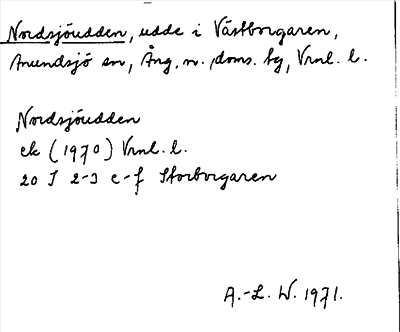 Nordsjöudden, udde i Västborgaren,
Anundsjö sn, Ång. n. doms. bg, Vrnl. l.
Nordsjöudden
ek (1970) Vrnl. l.
20 I 2-3 e-f Storborgaren
A.-L. W. 1971.